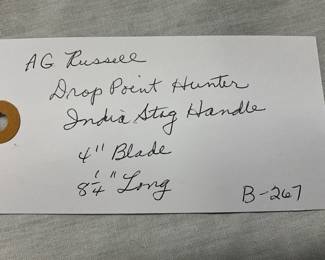 AG Russell
Drop Point Hunter
India Stag Handle
4" Blade
8 1/4" Long
B-267